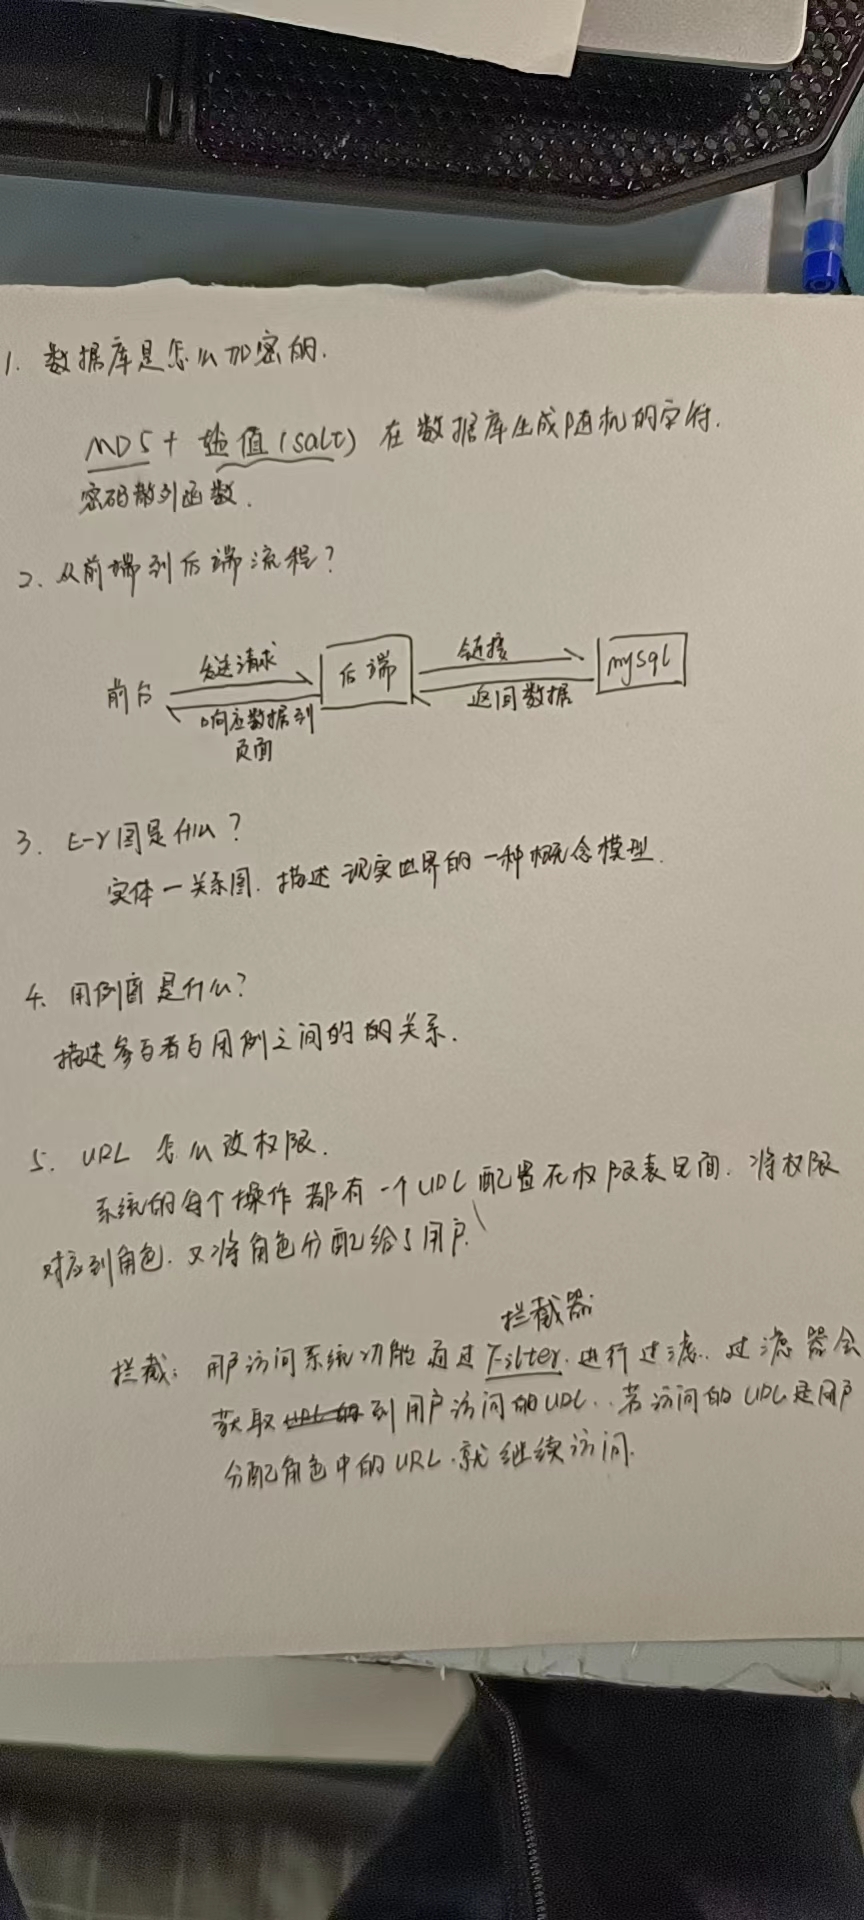 1. 数据库是怎么加密的.
MD5 + 盐值(salt) 在数据库生成随机的字符.
密码散列函数.
2. 从前端到后端流程?
前台 发送请求 后端 链接 mysql
响应数据到 返回数据
页面
3. E-r图是什么?
实体一关系图. 描述现实世界的一种概念模型.
4. 用例图是什么?
描述参与者与用例之间的的关系.
5. URL 怎么改权限.
系统的每个操作都有一个URL配置在权限表里面. 将权限
对应到角色. 又将角色分配给了用户.
拦截器
拦截: 用户访问系统功能通过Filter.进行过滤. 过滤器会
获取到用户访问的URL. 若访问的URL是用户
分配角色中的URL.就继续访问.